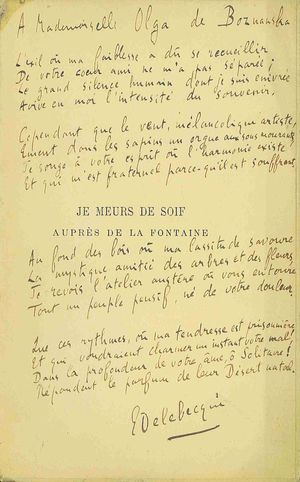 A Mademoiselle Olga de Boznanska
L'exil où ma faiblesse a dû se recueillir
De votre coeur ami ne m'a pas séparée ;
Le grand silence humain dont je suis enivrée
Avive en moi l'intensité du souvenir.
Cependant que le vent, mélancolique artiste,
Émeut dans les sapins un orgue aux sons mourants,
Je songe à votre esprit où l'harmonie existe
Et qui m'est fraternel parce qu'il est souffrant.
JE MEURS DE SOIF
AUPRÈS DE LA FONTAINE
Au fond des bois où ma lassitude savoure
La mystique amitié des arbres et des fleurs,
Je revois l'atelier austère où vous entoure
Tout un peuple pensif, né de votre douleur.
Que ces rythmes, où ma tendresse est prisonnière
Et qui voudraient charmer un instant votre mal,
Dans la profondeur de votre âme, ô Solitaire !
Répandent le parfum de leur Désert natal.
E Delebecque